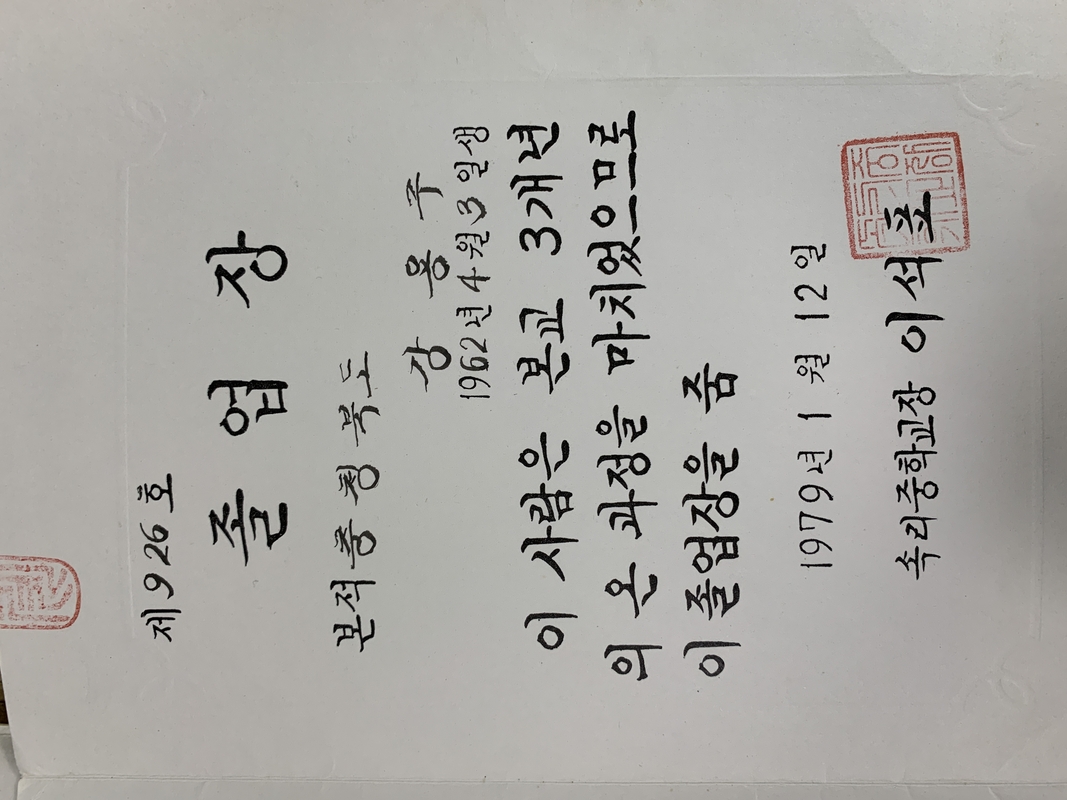 제926호
졸업장
본적 충청북도
강용주
1962년4월3일생
이 사람은 본교 3개년
의 온 과정을 마치었으므로
이 졸업장을 줌
1979년 1월 12일
속리중학교장 이석표